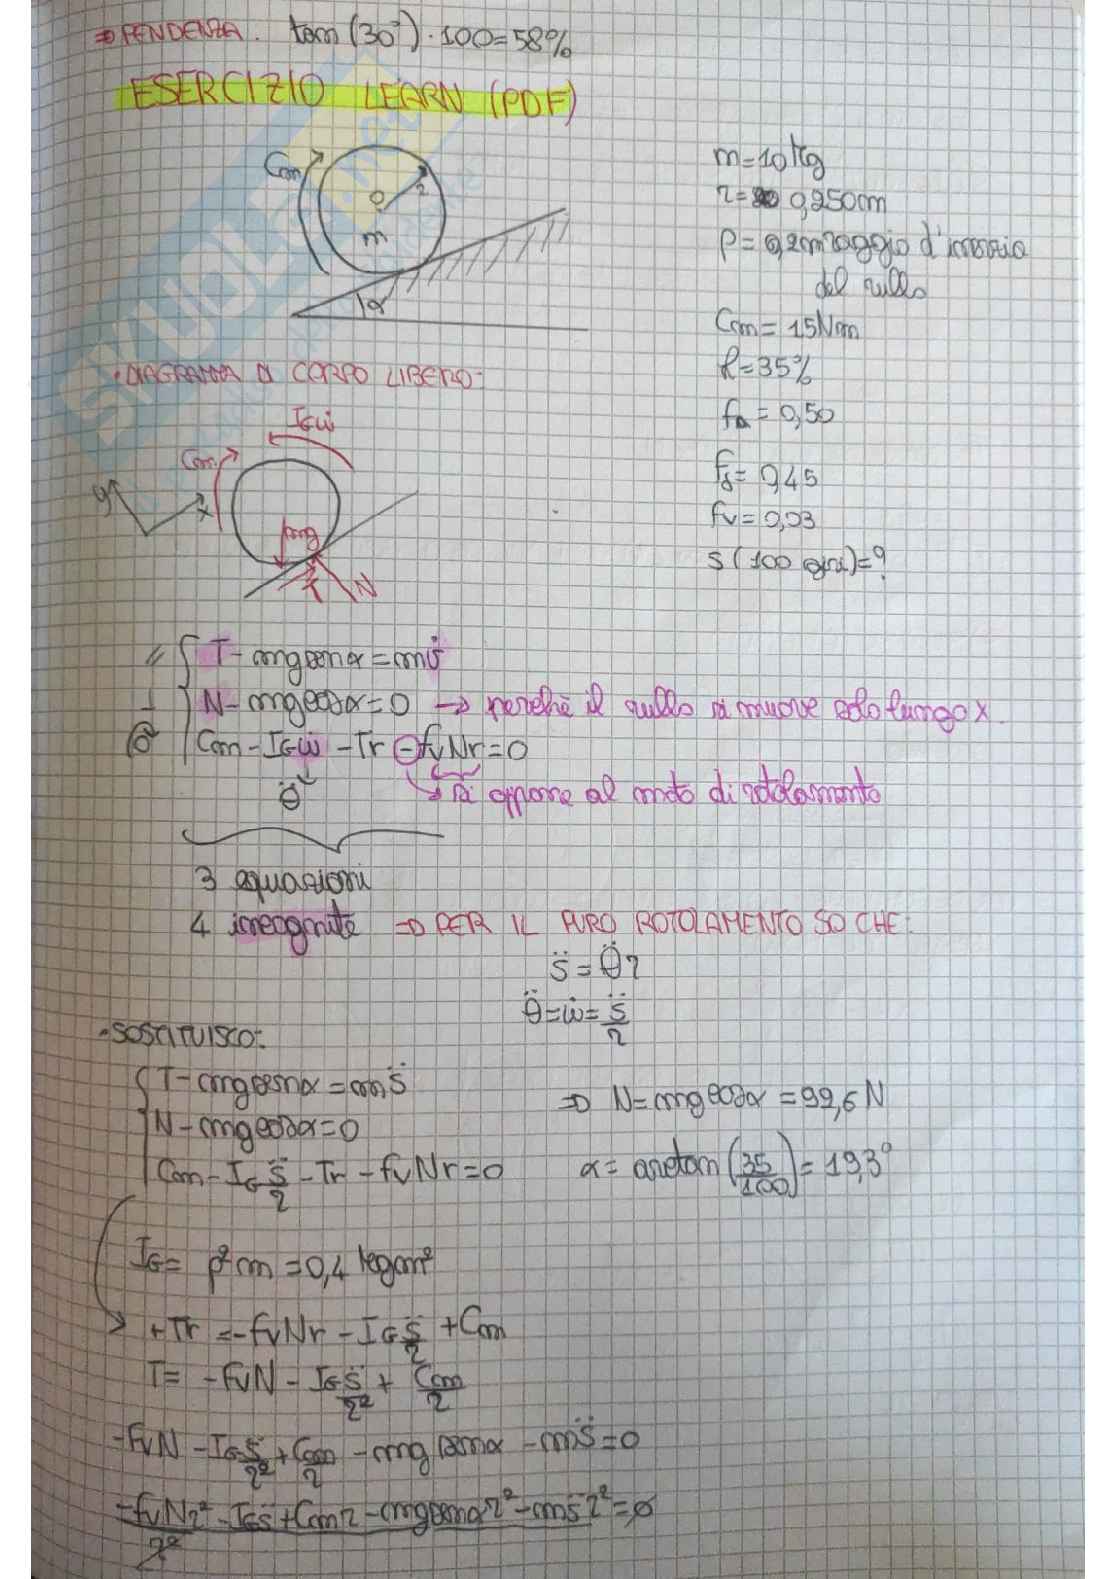 ⇒ PENDENZA. tan(30°)·100=58%
ESERCIZIO LEARN (PDF)
Cm
r
O
m
α
m=10kg
r= 0,250m
ρ=0,2m raggio d'inerzia
del rullo
Cm=15Nm
p=35%
fa=0,50
fd=0,45
fv=0,03
s(100 giri)=?
·DIAGRAMMA DI CORPO LIBERO:
IGω̇
Cm
y
x
mg
T
N
// { T-mgsenα=ms̈
N-mgcosα=0 → perché il rullo si muove solo lungo x.
Cm-IGω̇-Tr-fvNr=0
θ̈ ↳ si oppone al moto di rotolamento
3 equazioni
4 incognite ⇒ PER IL PURO ROTOLAMENTO SO CHE:
s̈=θ̈r
θ̈=ω̇=s̈/r
·SOSTITUISCO:
{ T-mgsenα=ms̈
N-mgcosα=0 ⇒ N=mgcosα=92,6N
Cm-IG s̈/r-Tr-fvNr=0 α=arctan(35/100)=19,3°
IG=ρ²m=0,4 kgm²
+Tr=-fvNr-IG s̈/r+Cm
T=-fvN-IG s̈/r²+Cm/r
-fvN-IG s̈/r²+Cm/r-mgsenα-ms̈=0
(-fvNr²-IGs̈+Cmr-mgsenαr²-ms̈r²)/r²=0
SKUOLA.net